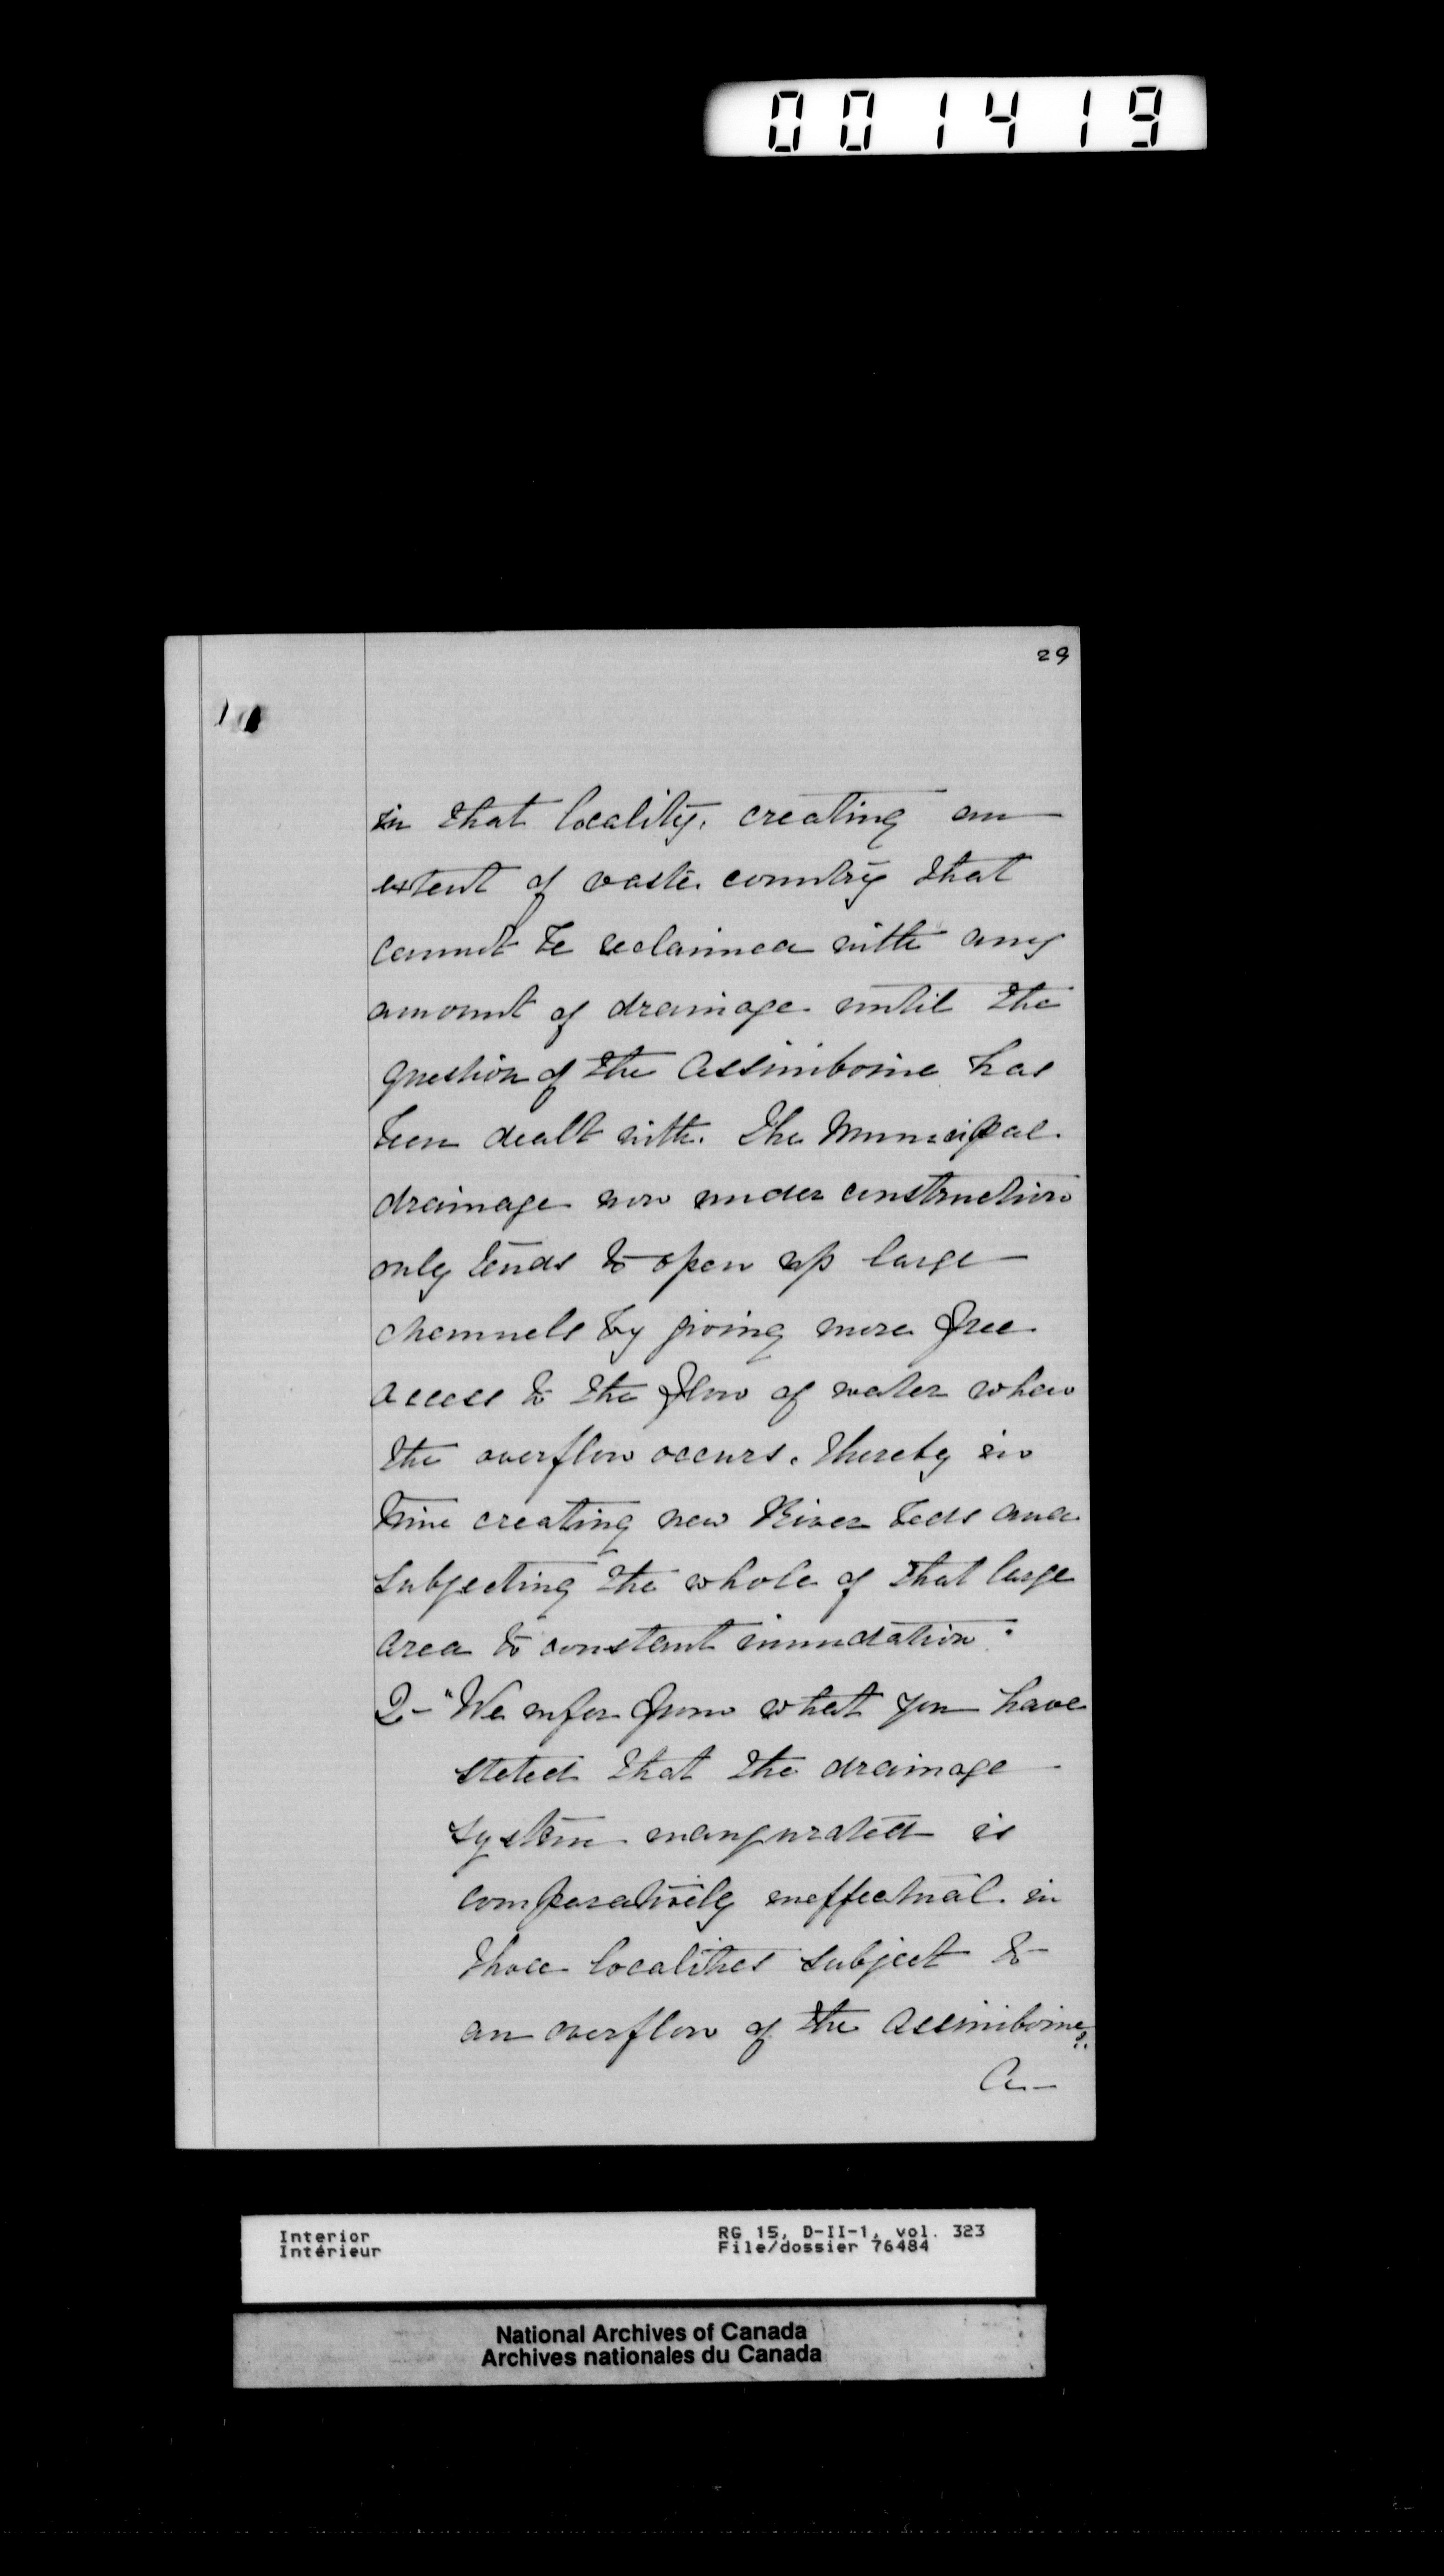 001419
29
in that locality, creating an
extent of waste country that
cannot be reclaimed with any
amount of drainage until the
question of the Assiniboine has
been dealt with. The Municipal
drainage now under construction
only tends to open up large
channels by giving more free
access to the flow of water when
the overflow occurs, thereby in
time creating new River beds and
subjecting the whole of that large
area to constant inundation.
Q- "We infer from what you have
stated that the drainage
system inaugurated is
comparatively ineffectual in
those localities subject to
an overflow of the Assiniboine?
A-
Interior
Intérieur
RG 15, D-II-1, vol. 323
File/dossier 76484
National Archives of Canada
Archives nationales du Canada